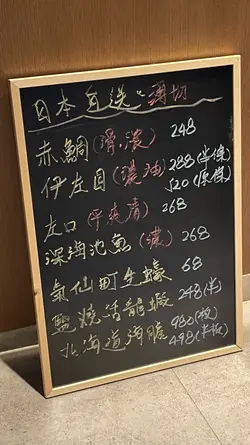 日本直送 薄切
赤鯛(滑,淡) 248
伊左目(濃油) 288(半條)
520(原條)
左口(平炭清) 268
深海池魚(濃) 268
氣仙町生蠔 68
鹽燒活龍蝦 248(半)
北海道海膽 980(板)
498(半板)